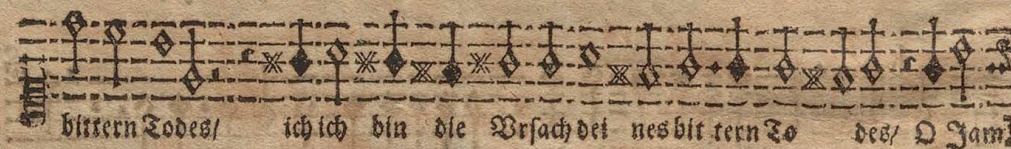 bittern Todes/ ich ich bin die Vrsach dei nes bit tern To des/ O Jam